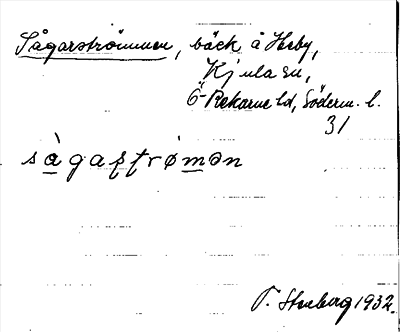 Sågarströmmen, bäck å Heby,
Kjula sn,
Ö-Rekarne hd, Söderm. l.
31
sågaſtrømən
T. Stenberg 1932.